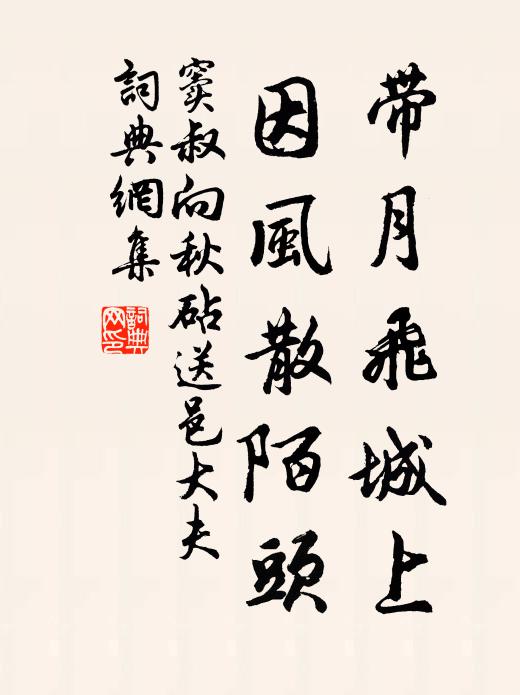 带月飛城上
因風散陌頭
竇叔向秋砧送邑大夫
詞典網集
詞典
网印